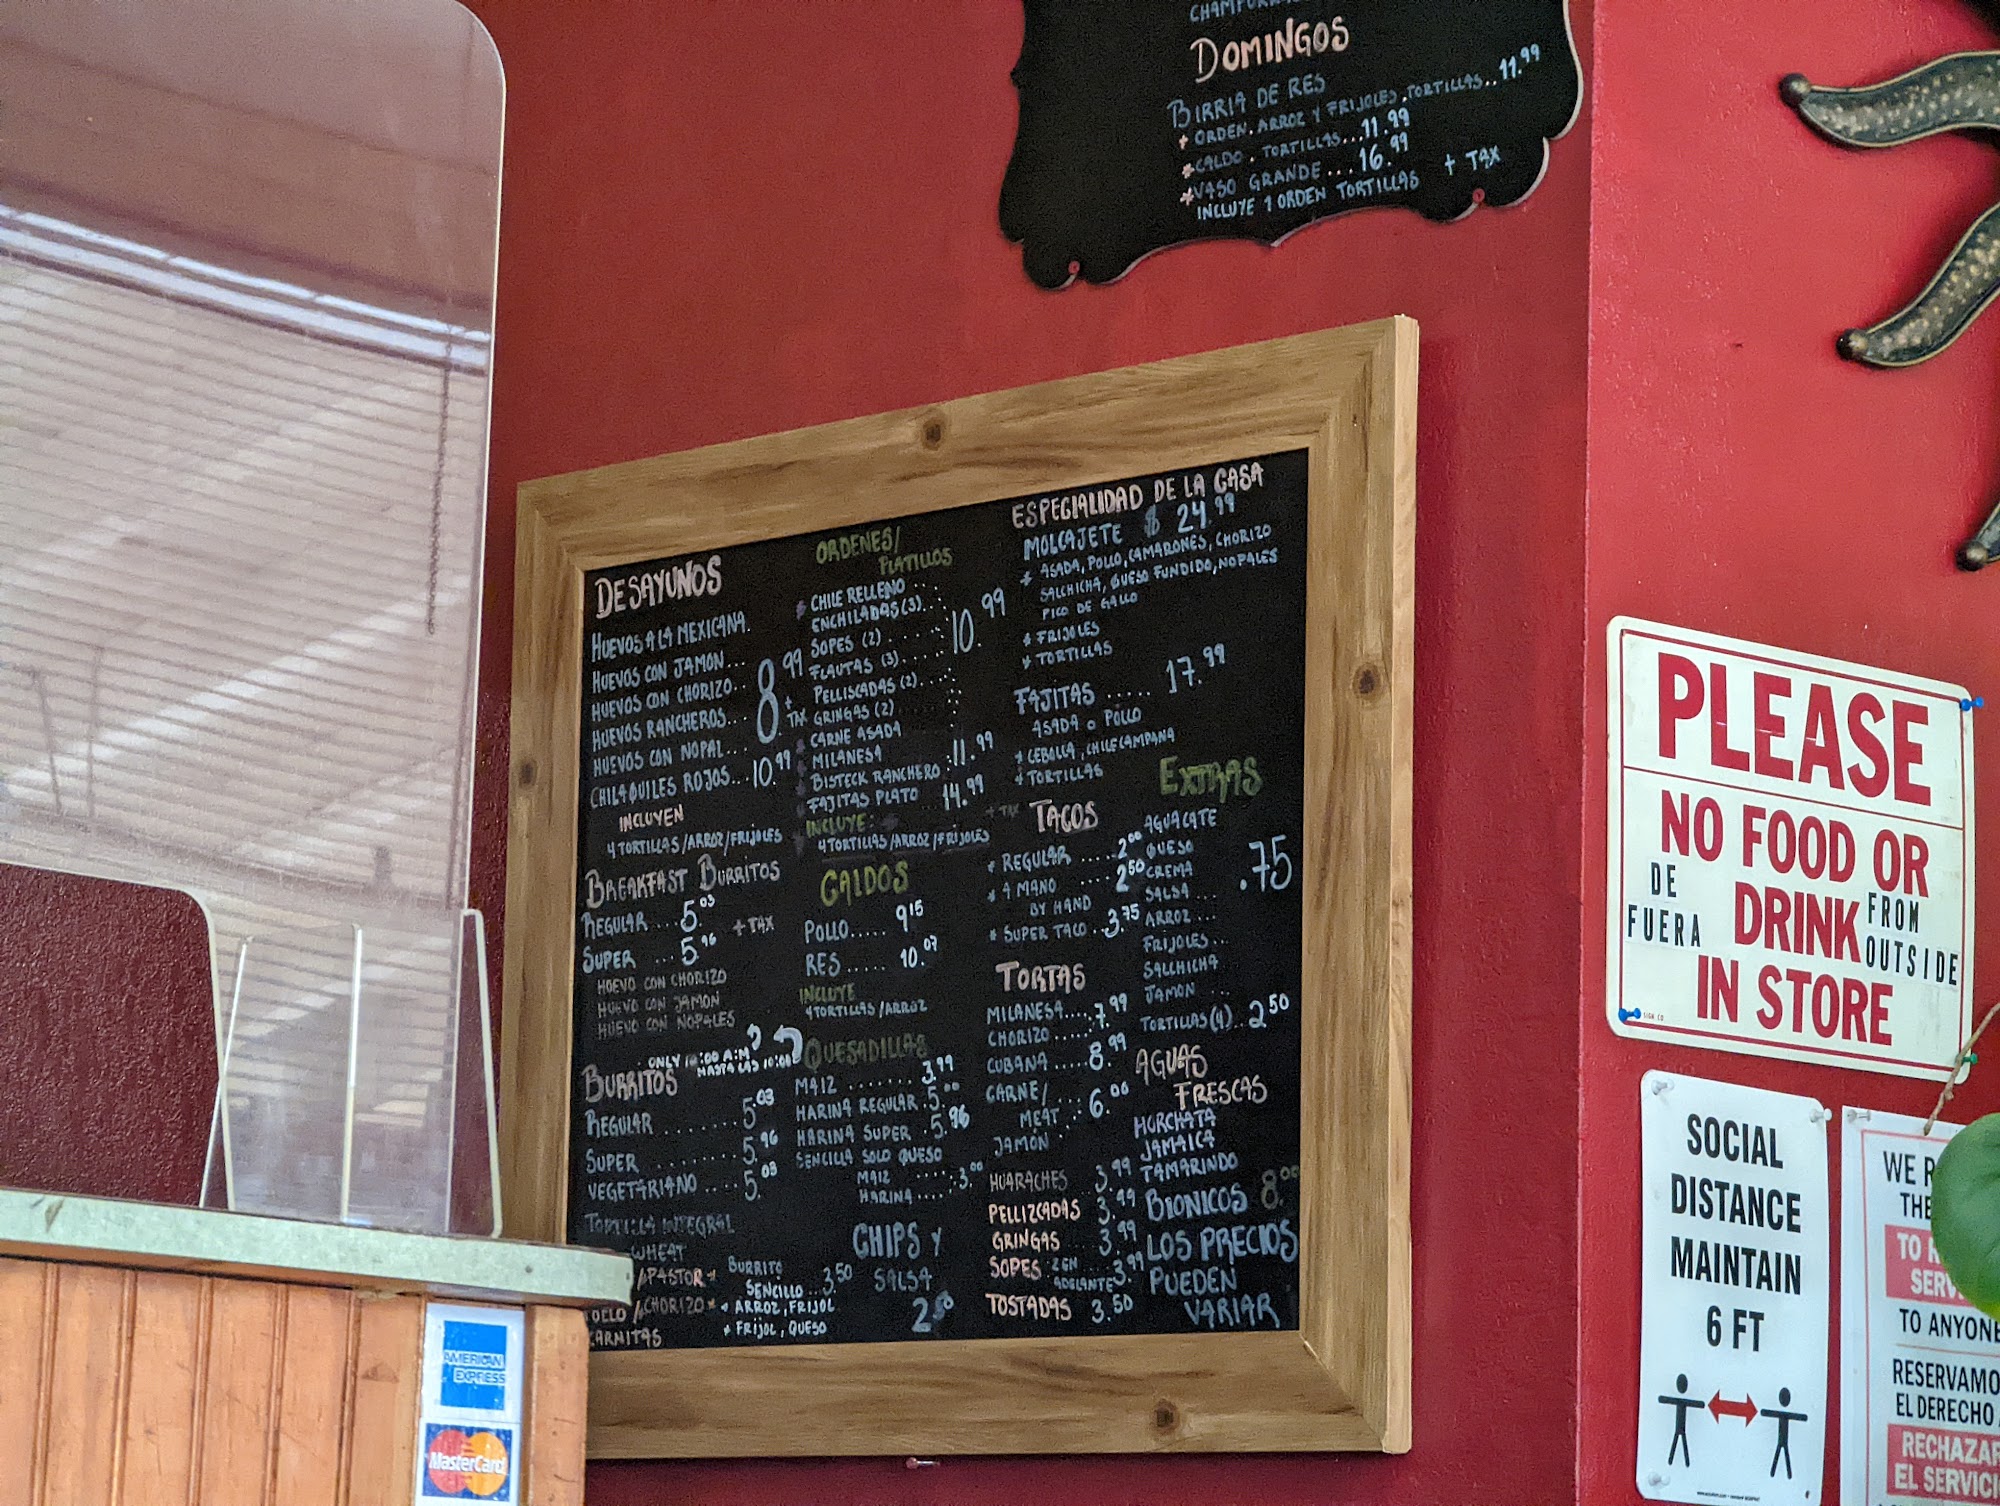 DOMINGOS
BIRRIA DE RES
* ORDEN. ARROZ Y FRIJOLES. TORTILLAS.. 11.99
* CALDO. TORTILLAS... 11.99
* VASO GRANDE... 16.99
INCLUYE 1 ORDEN TORTILLAS
+ TAX
DESAYUNOS
HUEVOS A LA MEXICANA.
HUEVOS CON JAMON...
HUEVOS CON CHORIZO..
HUEVOS RANCHEROS...
HUEVOS CON NOPAL...
8.99 + TAX
CHILAQUILES ROJOS... 10.99
INCLUYEN
4 TORTILLAS/ARROZ/FRIJOLES
BREAKFAST BURRITOS
REGULAR ... 5.03
SUPER ... 5.96
+ TAX
HUEVO CON CHORIZO
HUEVO CON JAMON
HUEVO CON NOPALES
ONLY 10:00 A:M
HASTA LAS 10:00
BURRITOS
REGULAR ........ 5.03
SUPER ......... 5.96
VEGETARIANO .... 5.03
TORTILLA INTEGRAL
WHEAT
/PASTOR
/CHORIZO
CARNITAS
BURRITO
SENCILLO .. 3.50
* ARROZ, FRIJOL
* FRIJOL, QUESO
ORDENES/
PLATILLOS
CHILE RELLENO ..
ENCHILADAS (3)..
SOPES (2) .....
FLAUTAS (3) ....
PELLISCADAS (2)..
GRINGAS (2)
10.99
CARNE ASADA
MILANESA
BISTECK RANCHERO 11.99
FAJITAS PLATO ... 14.99
+ TAX
INCLUYE:
4 TORTILLAS/ARROZ/FRIJOLES
CALDOS
POLLO..... 9.15
RES ..... 10.07
INCLUYE
4 TORTILLAS/ARROZ
QUESADILLAS
MAIZ ....... 3.99
HARINA REGULAR. 5.00
HARINA SUPER . 5.96
SENCILLA SOLO QUESO
MAIZ
HARINA .... 3.00
CHIPS Y
SALSA
ESPECIALIDAD DE LA CASA
MOLCAJETE $ 24.99
* ASADA, POLLO, CAMARONES, CHORIZO
SALCHICHA, QUESO FUNDIDO, NOPALES
PICO DE GALLO
* FRIJOLES
* TORTILLAS
FAJITAS ..... 17.99
ASADA O POLLO
* CEBOLLA, CHILE CAMPANA
* TORTILLAS
TACOS
* REGULAR .... 2.00
* A MANO .... 2.50
BY HAND
* SUPER TACO .. 3.75
TORTAS
MILANESA.... 7.99
CHORIZO
CUBANA .... 8.99
CARNE/
MEAT 6.00
JAMON
HUARACHES 3.99
PELLIZCADAS 3.99
GRINGAS 3.99
SOPES ZEN
ADELANTE 3.99
TOSTADAS 3.50
EXTRAS
AGUACATE
QUESO
CREMA
SALSA ...
ARROZ ...
FRIJOLES...
SALCHICHA
JAMON ...
.75
TORTILLAS (4).. 2.50
AGUAS
FRESCAS
HORCHATA
JAMAICA
TAMARINDO
BIONICOS 8.00
LOS PRECIOS
PUEDEN
VARIAR
PLEASE
NO FOOD OR
DRINK
IN STORE
DE
FUERA
FROM
OUTSIDE
SOCIAL
DISTANCE
MAINTAIN
6 FT
WE R
THE
TO R
SERV
TO ANYONE
RESERVAMO
EL DERECHO
RECHAZAR
EL SERVICI
AMERICAN
EXPRESS
MasterCard